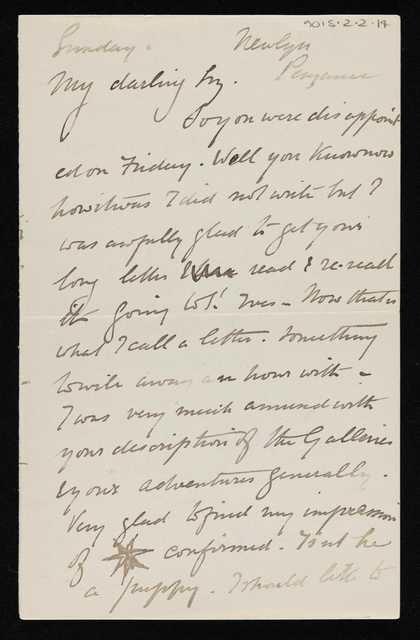 9015-2-2-14
Sunday. Newlyn
Penzance
My darling
So you were disappoint
ed on Friday. Well you know now
how it was I did not write but I
was awfully glad to get your
long letter read & re-read
it going to St. Ives - Now that is
what I call a letter. Something
to wile away an hour with -
I was very much amused with
your description of the Galleries
& your adventures generally.
Very glad to find my impression
of confirmed. Isnt he
a puppy. I should like to